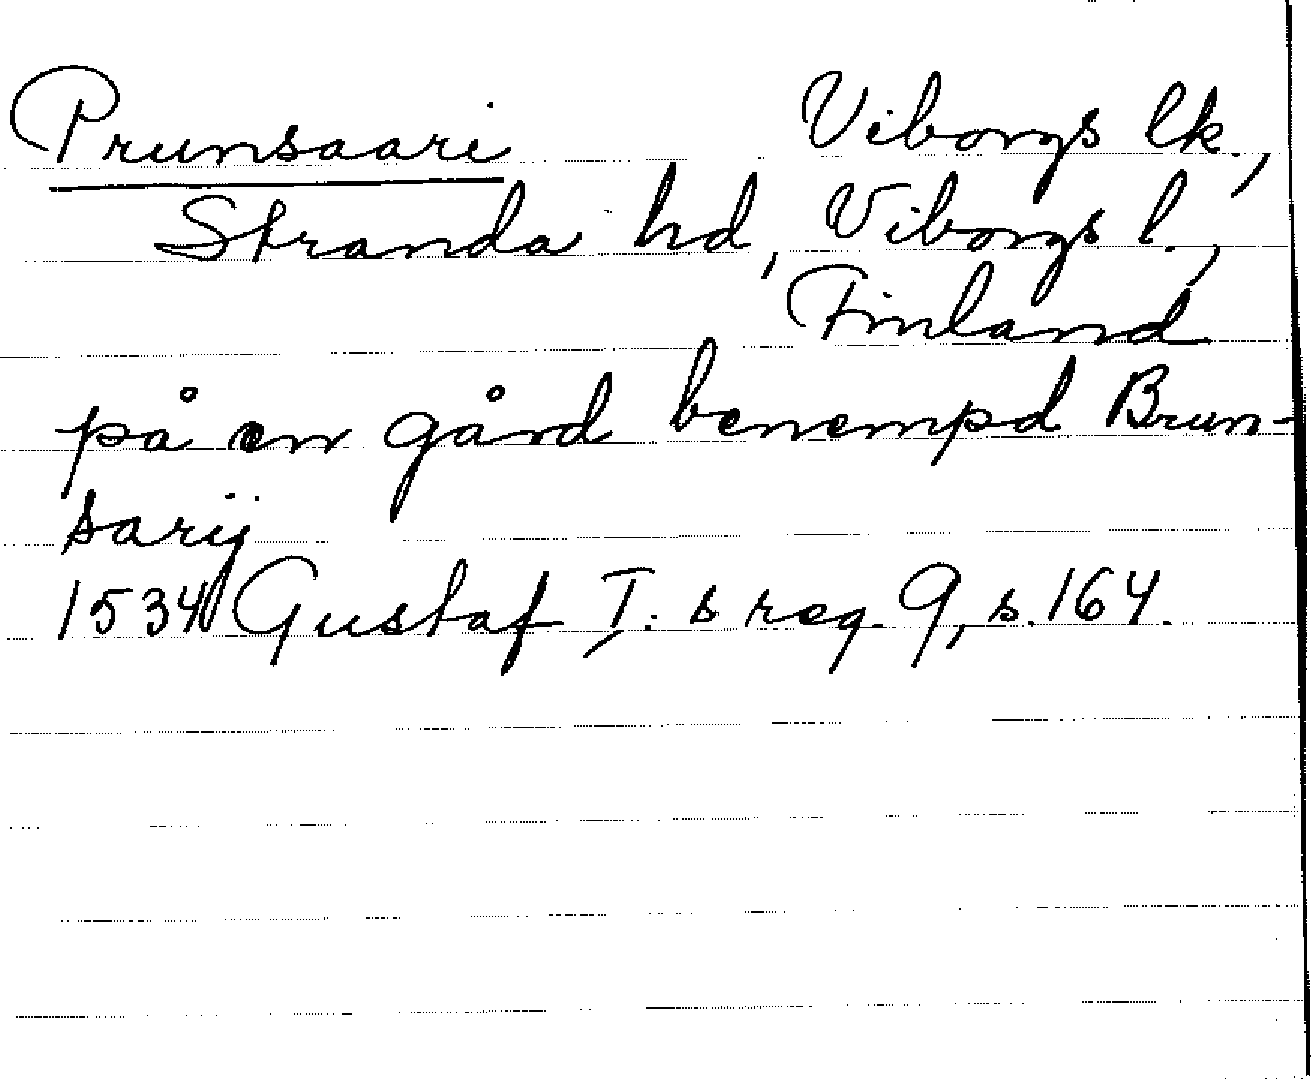 Prunsaari Viborgs lk.,
Stranda hd, Viborgs l.,
Finland
på en gård benempd Brun-
sarij
1534 Gustaf I:s reg. 9, s. 164.